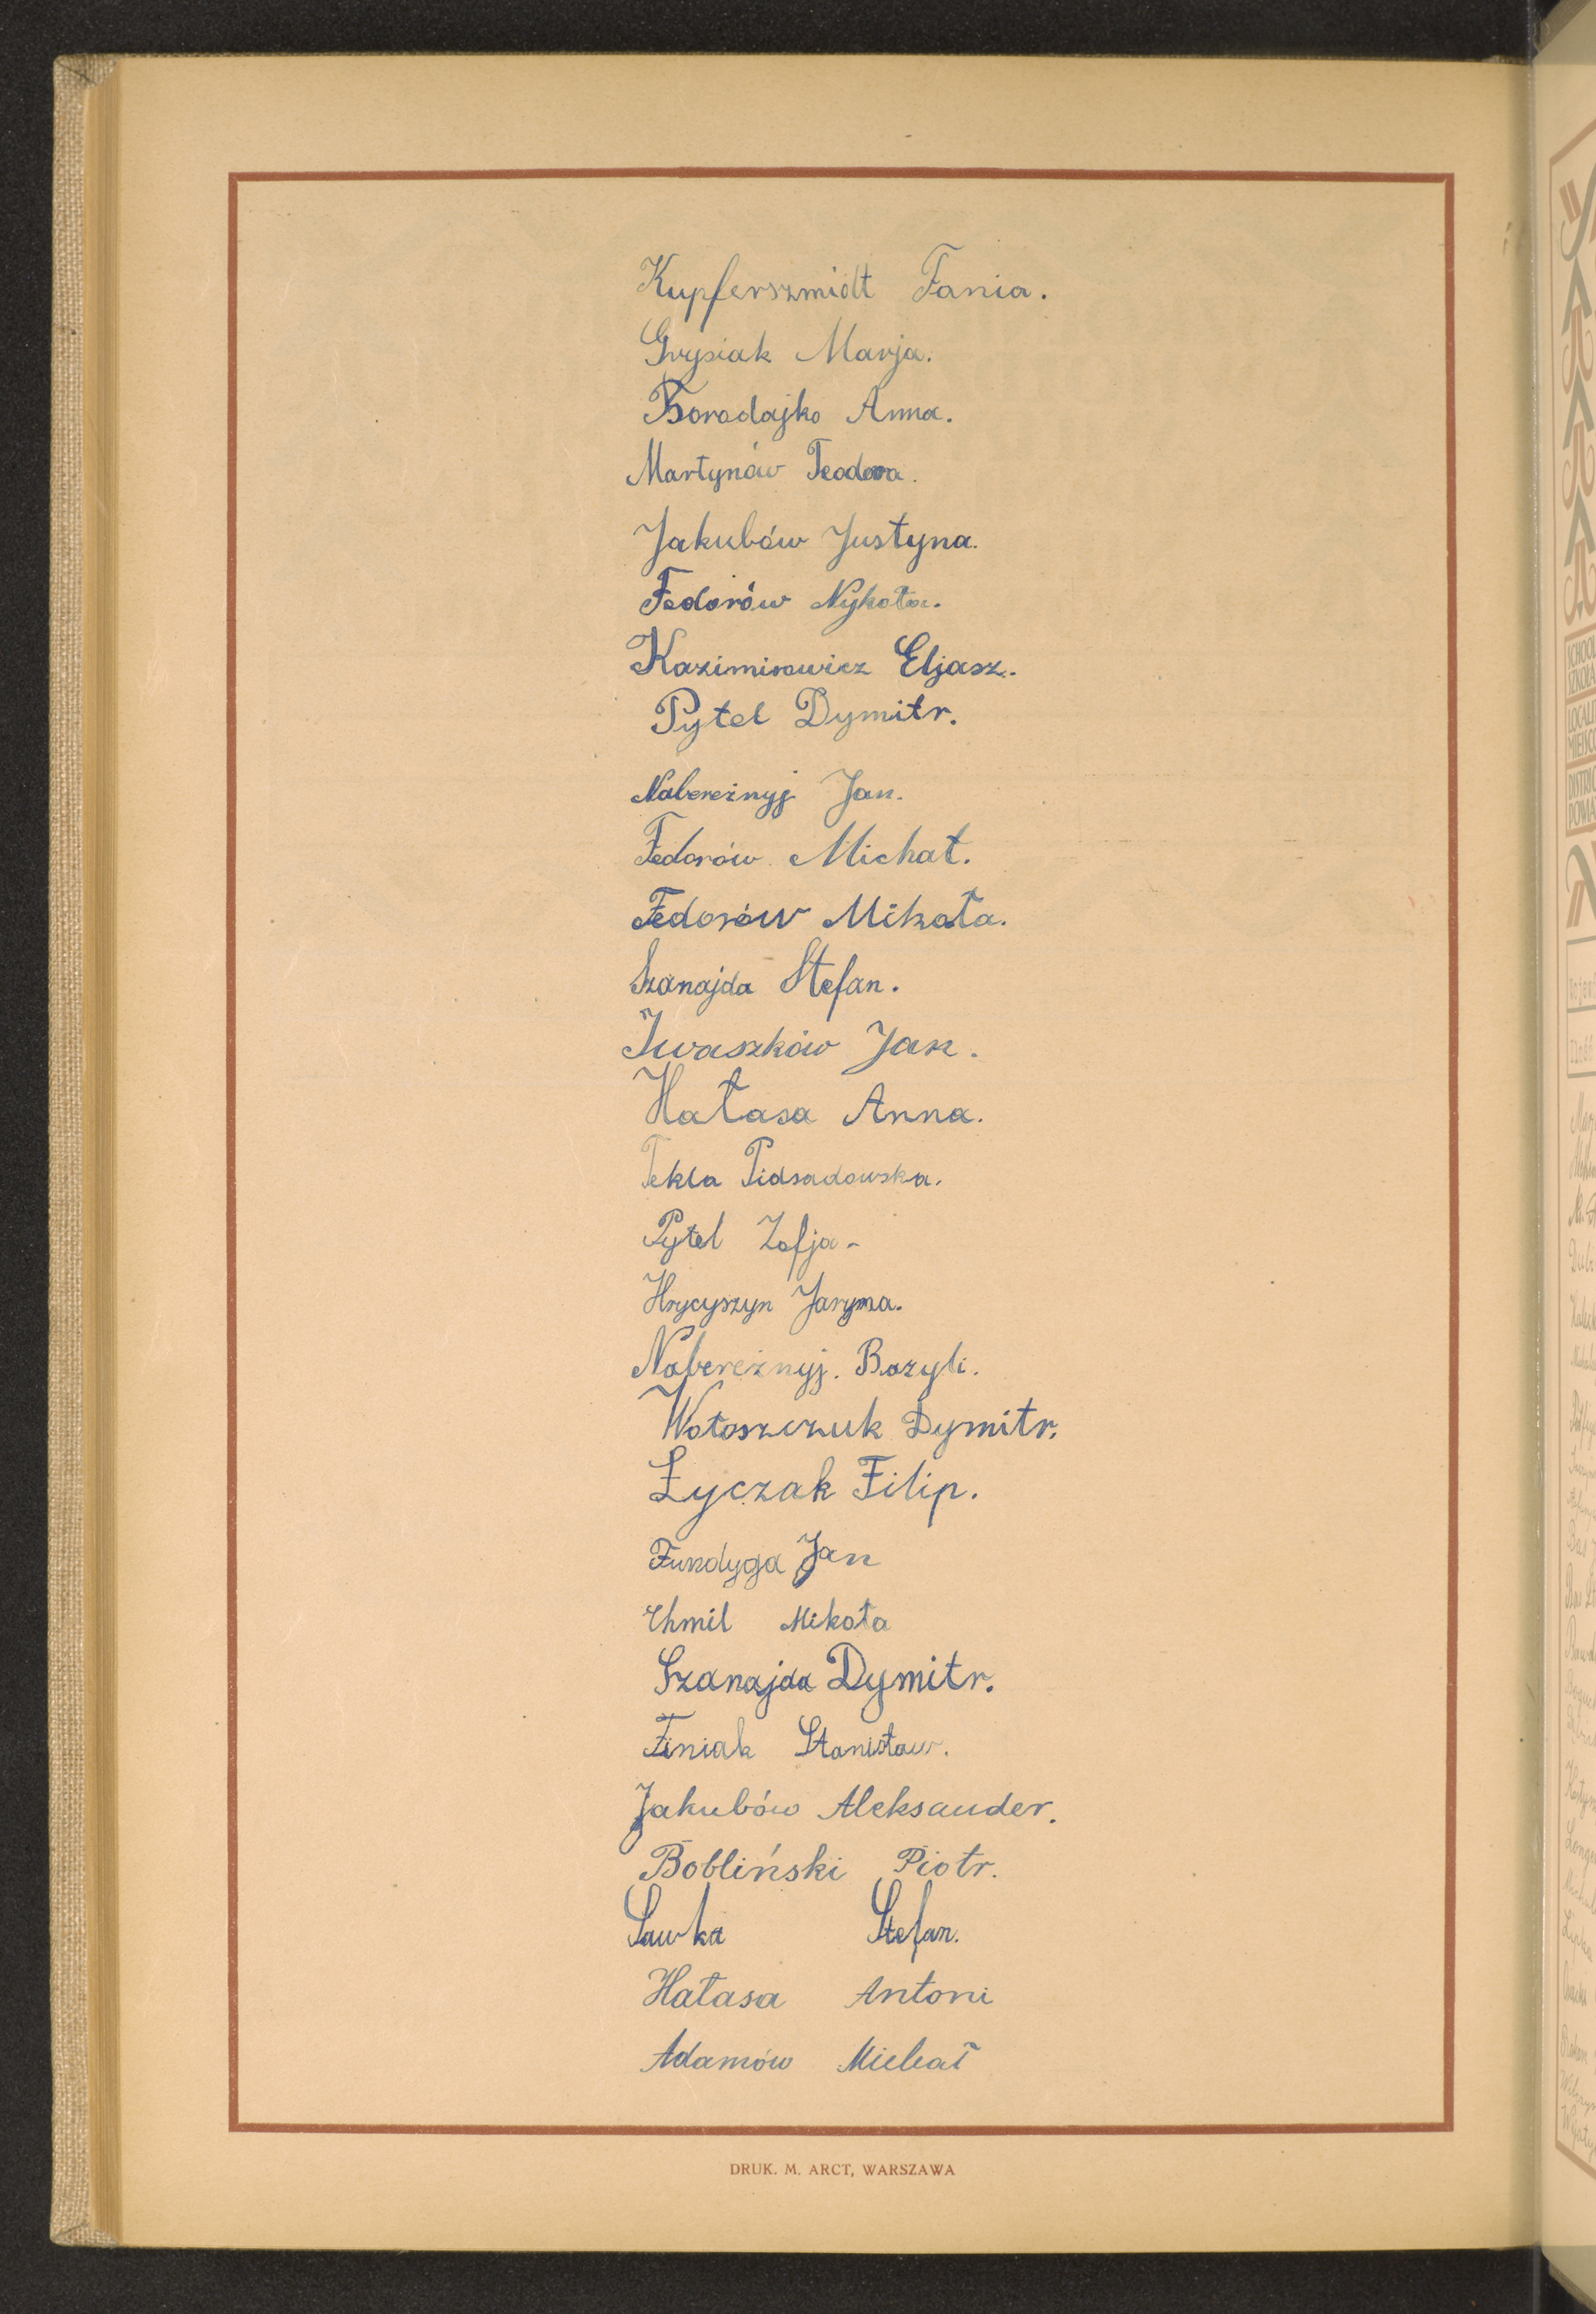 Kupferszmidt Fania.
Grysiak Marja.
Boradajko Anna.
Martynów Teodora.
Jakubów Justyna.
Fedorów Nykoła.
Kazimirowicz Eljasz.
Pytel Dymitr.
Nabereżnyj Jan.
Fedorów Michał.
Fedorów Mikoła.
Szanajda Stefan.
Iwaszków Jan.
Hałasa Anna.
Tekla Pidsadowska.
Pytel Zofja-
Hrycyszyn Jaryna.
Nabereżnyj. Bazyli.
Wołoszczuk Dymitr.
Łyczak Filip.
Fundyga Jan
Chmil Mikoła
Szanajda Dymitr.
Finiak Stanisław.
Jakubów Aleksander.
Bobliński Piotr.
Sawka Stefan.
Hałasa Antoni
Adamów Michał
DRUK. M. ARCT, WARSZAWA
SZKOŁA